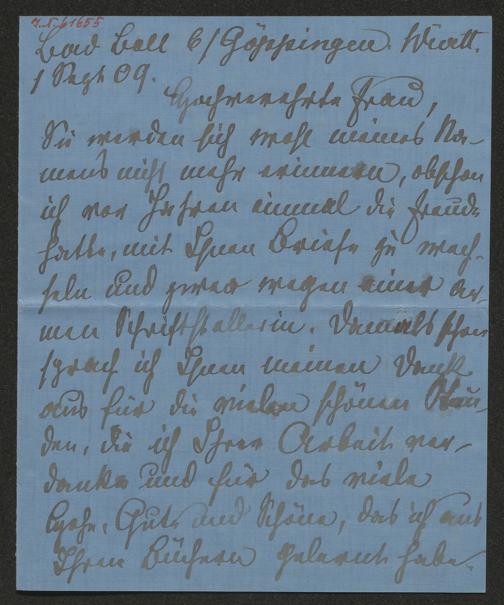 J. N. 61655
Bad Boll b/ Göppingen. Württ.
1 Sept 09.
Hochverehrte Frau,
Sie werden sich wohl meines Na-
mens nicht mehr erinnern, obschon
ich vor Jahren einmal die Freude
hatte, mit Ihnen Briefe zu wech-
seln und zwar wegen einer ar-
men Schriftstellerin. Damals schon
sprach ich Ihnen meinen Dank
aus für die vielen schönen Stun-
den, die ich Ihrer Arbeit ver-
danke und für das viele
Hohe, Gute und Schöne, das ich aus
Ihren Büchern gelernt habe.